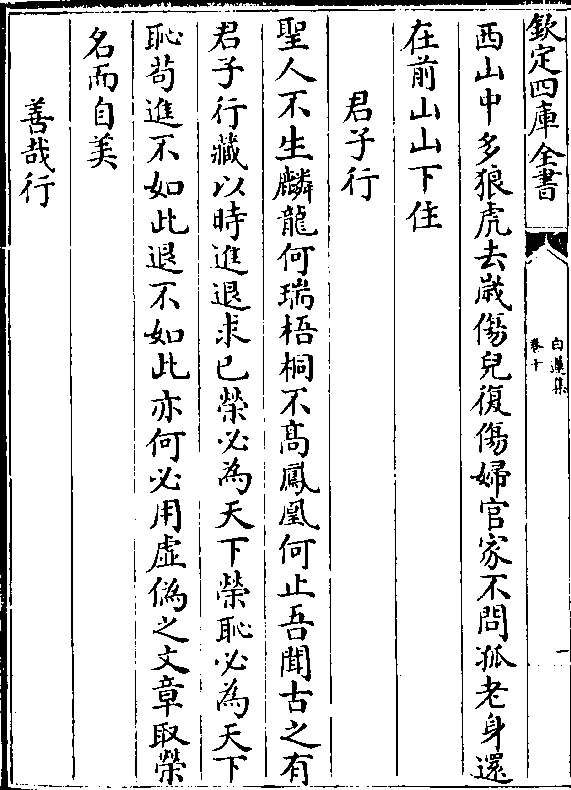 欽定四庫全書
白蓮集
卷十
一
西山中多狼虎去歲傷兒復傷婦官家不問孤老身還
在前山山下住
君子行
聖人不生麟龍何瑞梧桐不高鳳凰何止吾聞古之有
君子行藏以時進退求已榮必為天下榮恥必為天下
恥苟進不如此退不如此亦何必用虛偽之文章取榮
名而自美
善哉行